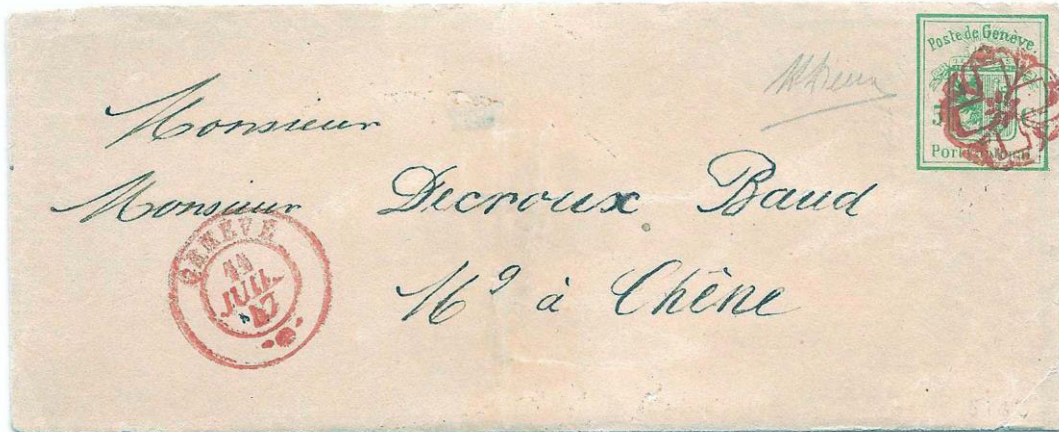 Poste de Genève
Port
Monsieur
Monsieur Decroux Baud
Md à Chêne
GENÈVE
11
JUIL.
47